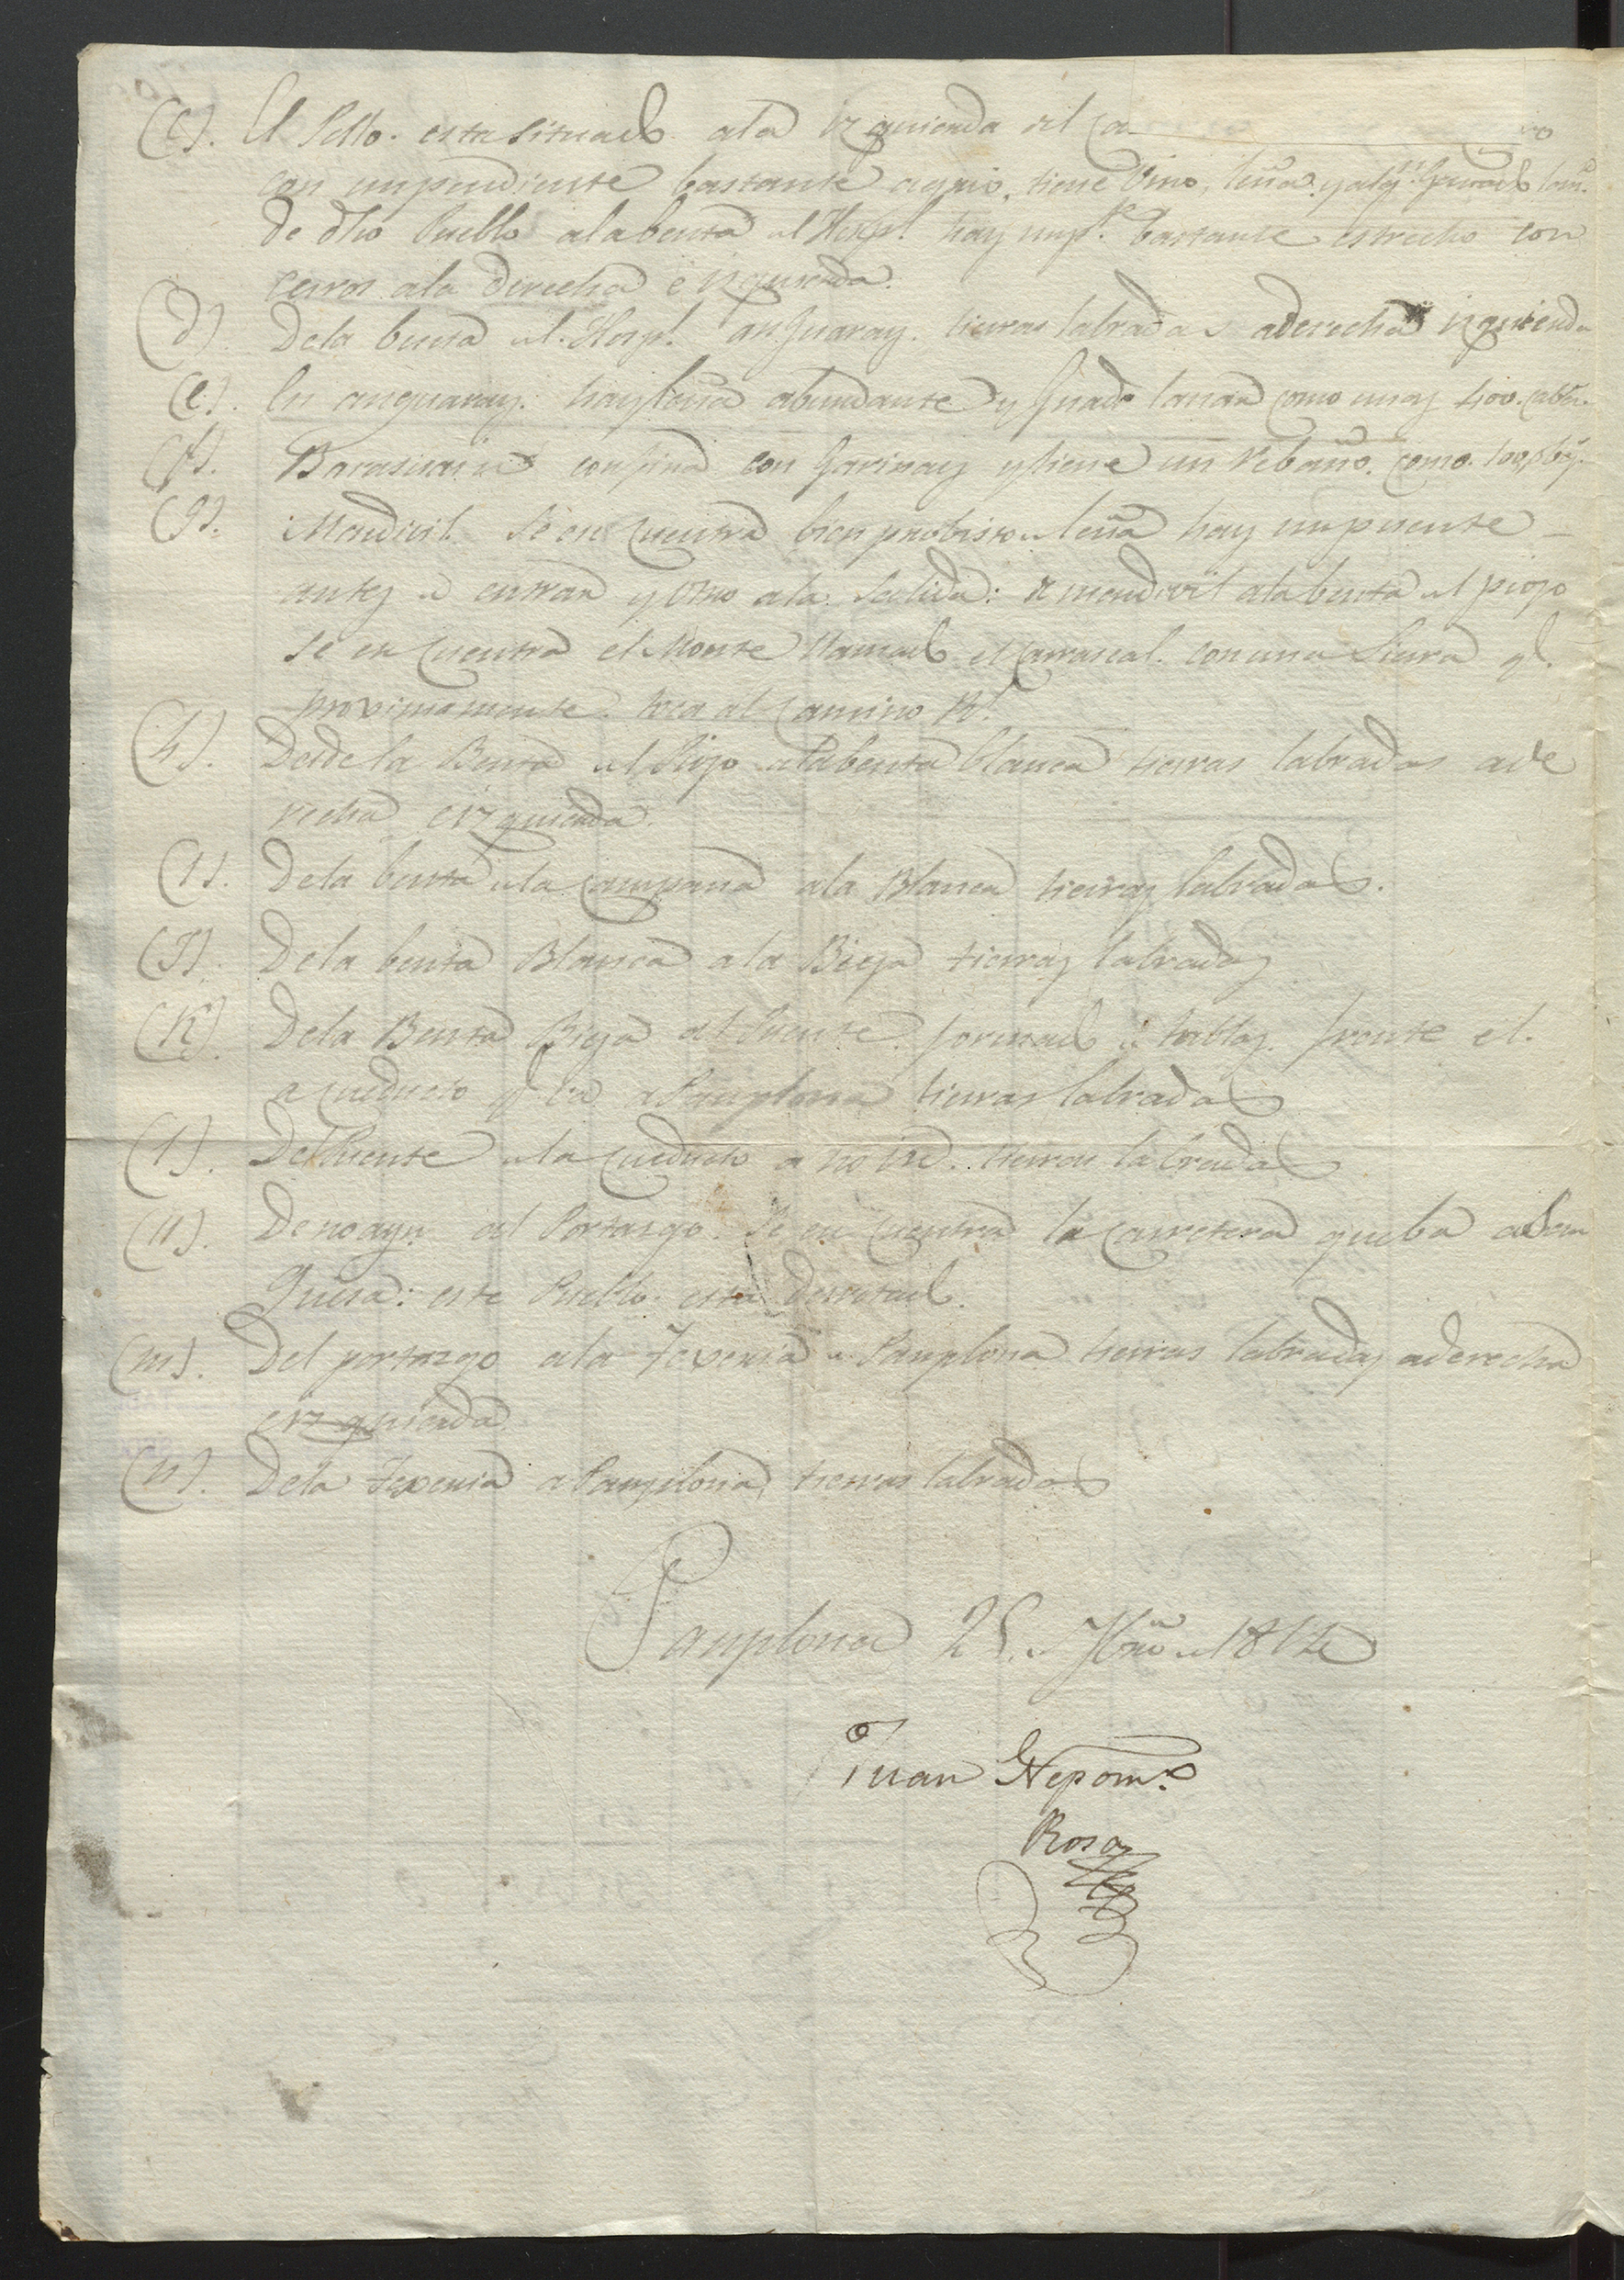 (C). El Pblo. esta situado ala izquierda del Ca
con un pendiente bastante agrio, tiene Vino, leña, y alg.n Ganado lan.r
de dho Pueblo ala benta del Hosp.l hay un p.te bastante estrecho con
cerros ala derecha e izquierda.
(d). Dela benta del Hosp.l an Guaraz. tierras labradas aderecha izquierda
(e). En anguaraz. hay leña abundante y Ganado lanar como unas 400. cabez.
(f). Barasuain confina con Garinoaz y tiene un rebaño. como
(g). Mendivil. Se en Cuentra bien probisto de leña hay un puente
antes de entrar y otro ala Salida: de mendivil ala benta del piojo
se en Cuentra el Monte llamado el Carrascal. con una Sierra q.e
proximamente toca al Camino R.l
(h). Desde la Benta del Piojo ala benta blanca tierras labradas ade
recha e izquierda.
(I). Dela benta dela Campana ala Blanca tierras labradas.
(J). Dela benta Blanca a la Bieja tierras labradas
(K). Dela Benta Bieja al Puente formado de tablas. frente el.
a Cueducto q.e va a Pamplona tierras labradas
(l). Del Puente dela Cueducto a no tierras labradas
(ll). De noayn al Portazgo. Se en Cuentra la Carretera que ba a San
Guesa: este Pueblo esta derrotado.
(m). Del portazgo ala Texeria de Pamplona tierras labradas aderecha
e izquierda
(n). Dela Texeria a Pamplona tierras labradas
Pamplona 25 de de 1812
Juan Nepom.o
Rosas